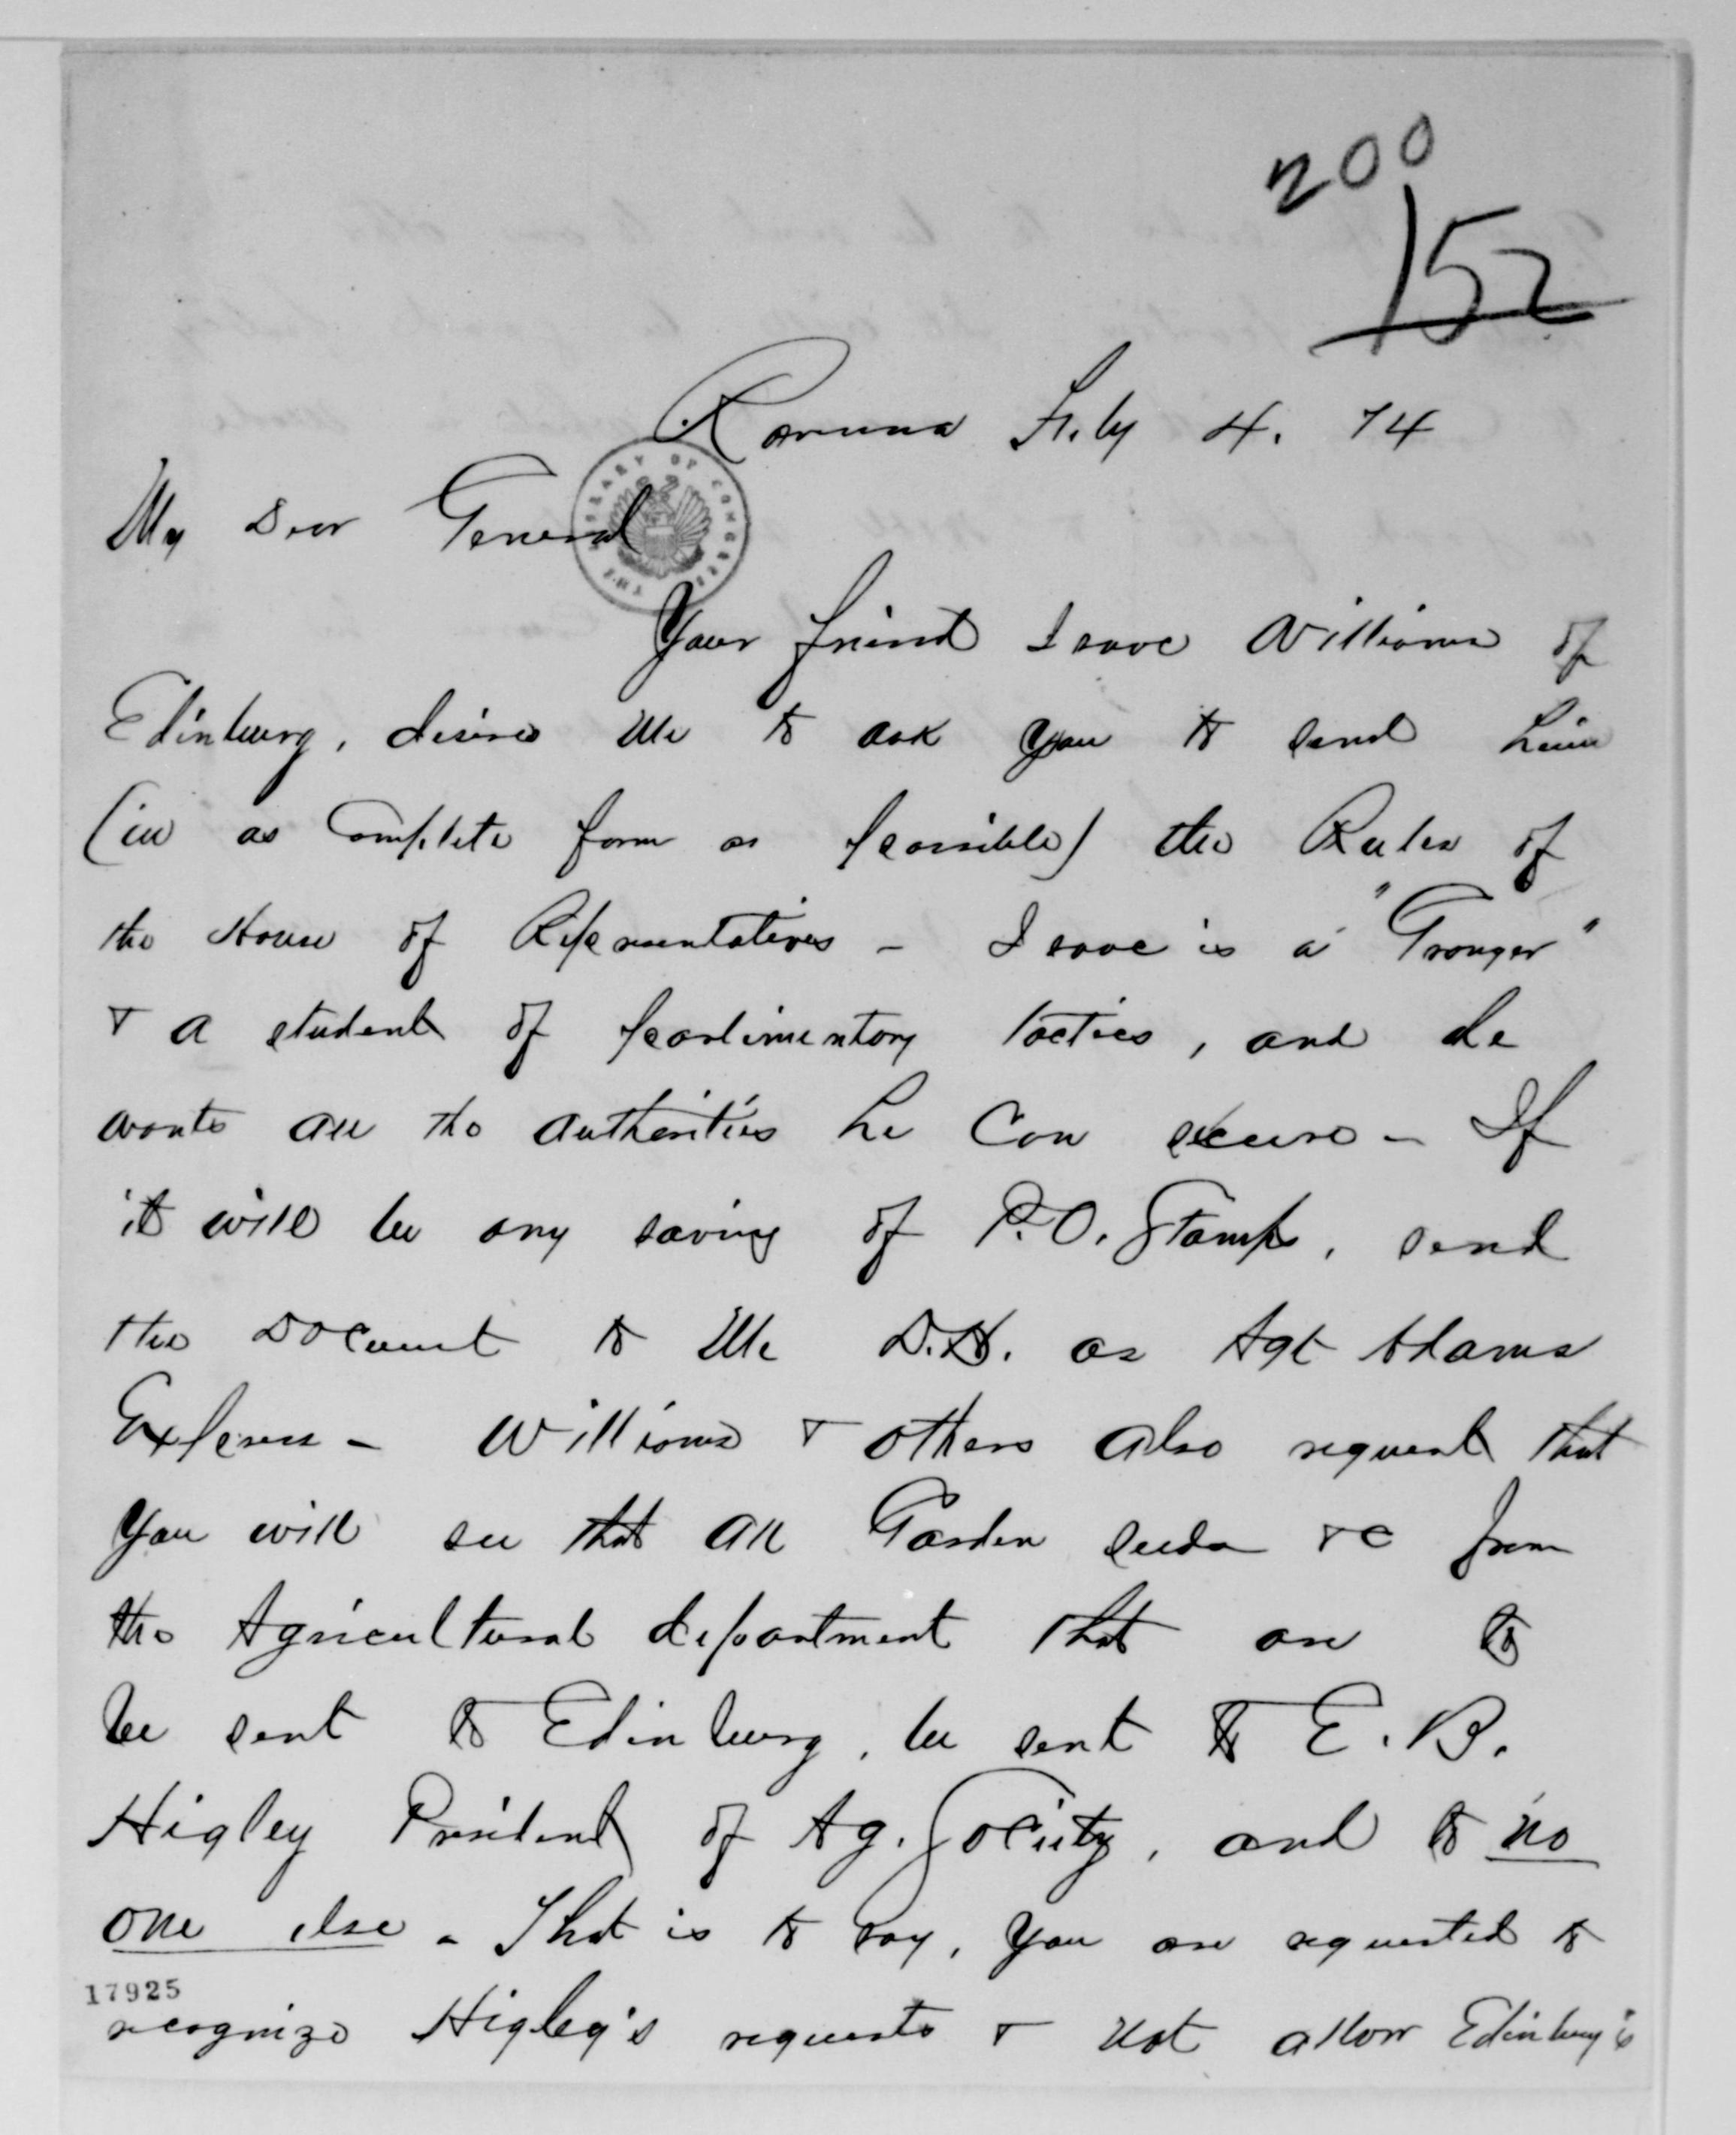 200
152
Ravenna Feby 4. 74
My Dear General
THE LIBRARY OF CONGRESS
Your friend Isaac Williams of
Edinburg, desires me to ask you to send him
(in as complete form as possible) the Rules of
the House of Representatives - Isaac is a "Granger"
& a student of parlimentary tactics, and he
wants all the authorities he can secure - If
it will be any saving of P.O. Stamps, send
the Document to me D.H. as Agt Adams
Express - Williams & others also request that
you will see that all Garden seeds &c from
the Agricultural department that are to
be sent to Edinburg, be sent to E. B.
Higley President of Ag. Society, and to no
one else - That is to say, you are requested to
17925
recognize Higley's requests & not allow Edinburg's